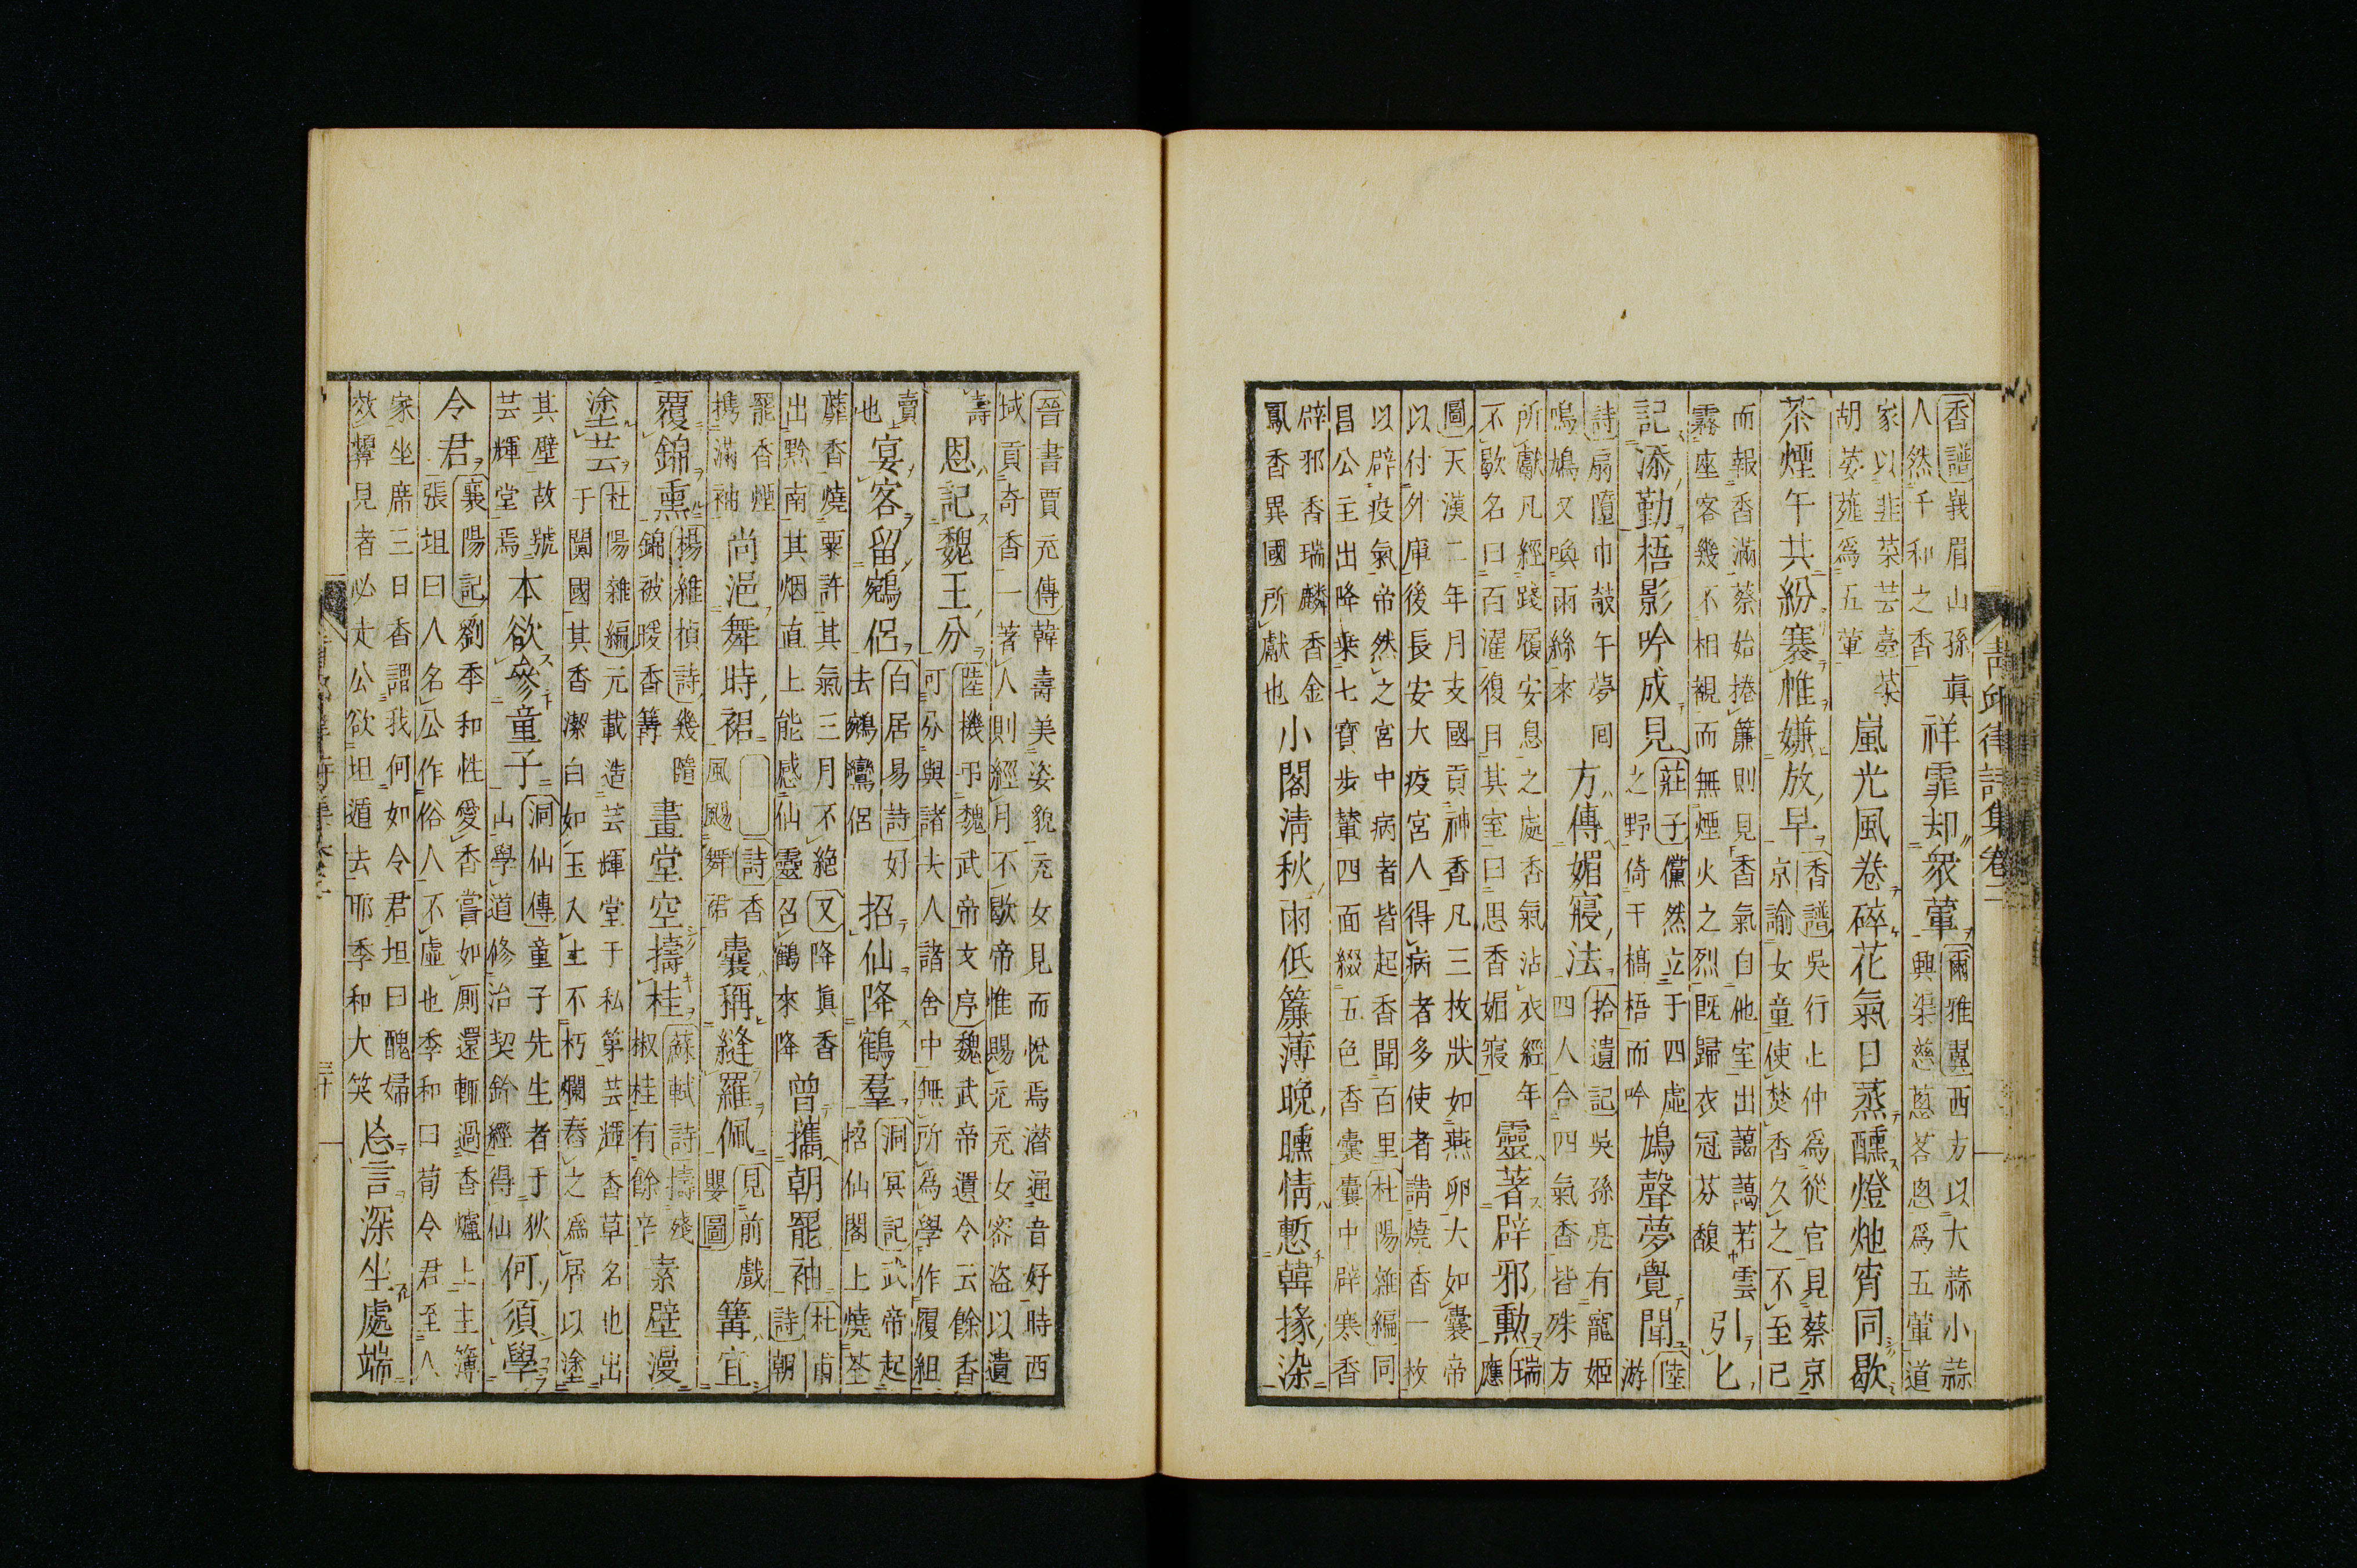 青邱律詩集卷二
香譜峩眉山孫眞
人然千和之香
祥霏却衆葷
爾雅翼西方以大蒜小蒜
興渠慈葱茖葱爲五葷道
家以韭菜芸薹菜
胡荽薤爲五葷
嵐光風卷碎花氣日蒸醺燈灺宵同歇
茶煙午共紛褰帷嫌放早
香譜吳行上仲爲從官見蔡京
京諭女童使焚香久之不至已
而報香滿蔡始捲簾則見香氣自他室出藹藹若雲
霧座客幾不相覩而無煙火之烈既歸衣冠芬馥
引匕
記添勤梧影吟成見
莊子儻然立于四虛
之野倚干槁梧而吟
鳩聲夢覺聞
陸
游
詩扇隨巾敲午夢囘
鳴鳩又喚雨絲來
方傳媚寢法
拾遺記吳孫亮有寵姬
四人合四氣香皆殊方
所獻凡經踐履安息之處香氣沾衣經年
不歇名曰百濯復目其室曰思香媚寢
靈著辟邪勳
瑞
應
圖天漢二年月支國貢神香凡三枚狀如燕卵大如囊帝
以付外庫後長安大疫宮人得病者多使者請燒香一枚
以辟疫氣帝然之宮中病者皆起香聞百里杜陽雜編同
昌公主出降乘七寶步輦四面綴五色香囊囊中辟寒香
辟邪香瑞麟香金
鳳香異國所獻也
小閣清秋雨低簾薄晚曛情慙韓掾染
晉書賈充傳韓壽美姿貌充女見而悅焉潜通音好時西
域貢奇香一著人則經月不歇帝惟賜充充女密盜以遺
壽
恩記魏王分
陸機弔魏武帝文序魏武帝遺令云餘香
可分與諸夫人諸舍中無所爲學作履組
賣
也
宴客留鵷侶
白居易詩好
去鵷鸞侶
招仙降鶴羣
洞冥記武帝起
招仙閣上燒荃
蘼香燒粟許其氣三月不絶又降眞香
出黔南其烟直上能感仙靈召鶴來降
曾攜朝罷袖
杜甫
詩朝
罷香煙
携滿袖
尚浥舞時裙
詩香
風颺舞裙
囊稱縫羅佩
見前戲
嬰圖
篝宜
覆錦熏
楊維楨詩幾隨
錦被暖香篝
畫堂空擣桂
蘇軾詩擣殘
椒桂有餘辛
素壁漫
塗芸
杜陽雜編元載造芸輝堂于私第芸輝香草名也出
于闐國其香潔白如玉入土不朽爛舂之爲屑以塗
其壁故號
芸輝堂焉
本欲參童子
洞仙傳童子先生者于狄
山學道修治契鈴經得仙
何須學
令君
襄陽記劉季和性愛香嘗如厠還輙過香爐上主簿
張坦曰人名公作俗人不虛也季和曰荀令君至人
家坐席三日香謂我何如令君坦曰醜婦
效顰見者必走公欲坦遁去耶季和大笑
忘言深坐處端
三十